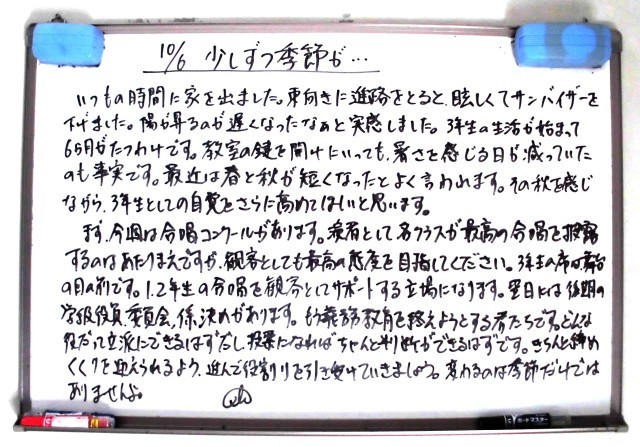 10/6 少しずつ季節が…
いつもの時間に家を出ました。東向きに進路をとると、眩しくてサンバイザーを
下げました。陽が昇るのが遅くなったなぁと実感しました。3年生の生活が始まって
6ヶ月がたつわけです。教室の鍵を開けにいっても、暑さを感じる日が減っていた
のも事実です。最近は春と秋が短くなったとよく言われます。その秋を感じ
ながら、3年生としての自覚をさらに高めてほしいと思います。
まず、今週は合唱コンクールがあります。奏者として各クラスが最高の合唱を披露
するのはあたりまえですが、観客としても最高の態度を目指してください。3年生の席は舞台
の目の前です。1.2年生の合唱を観客としてサポートする立場になります。翌日には後期の
学級役員、委員会、係、決めがあります。もう義務教育を終えようとする者たちです。どんな
役だって立派にできるはずだし、授業になればちゃんと判断ができるはずです。きちんと締め
くくりを迎えられるよう、進んで役割りを引き受けていきましょう。変わるのは季節だけでは
ありませんよ。
ボードマスター